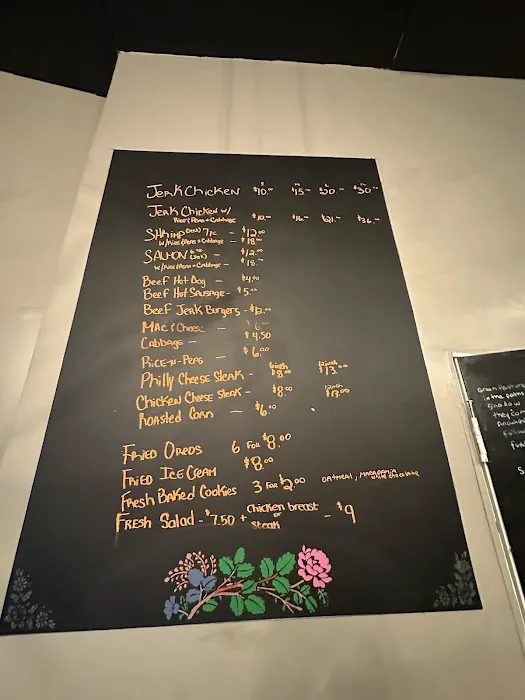 Jerk Chicken $10.00 $15.00 $20.00 $30.00
Jerk Chicken w/
Rice/Peas + Cabbage $10.00 $16.00 $21.00 $36.00
Shrimp 7pc - $12.00
w/Rice/Peas + Cabbage - $18.00
Salmon - $12.00
w/Rice/Peas + Cabbage - $18.00
Beef Hot Dog - $4.00
Beef Hot Sausage - $5.00
Beef Jerk Burgers - $12.00
Mac & Cheese - 6.00
Cabbage - $4.50
Rice-N-Peas - $6.00
Philly Cheese Steak - 6inch $8.00 12inch $13.00
Chicken Cheese Steak - $8.00 12inch $13.00
Roasted Corn - $6.00
Fried Oreos 6 for $8.00
Fried Ice Cream $8.00
Fresh Baked Cookies 3 for $2.00 oatmeal, macadamia white chocolate
Fresh Salad - $7.50 + Chicken breast or Steak - $9